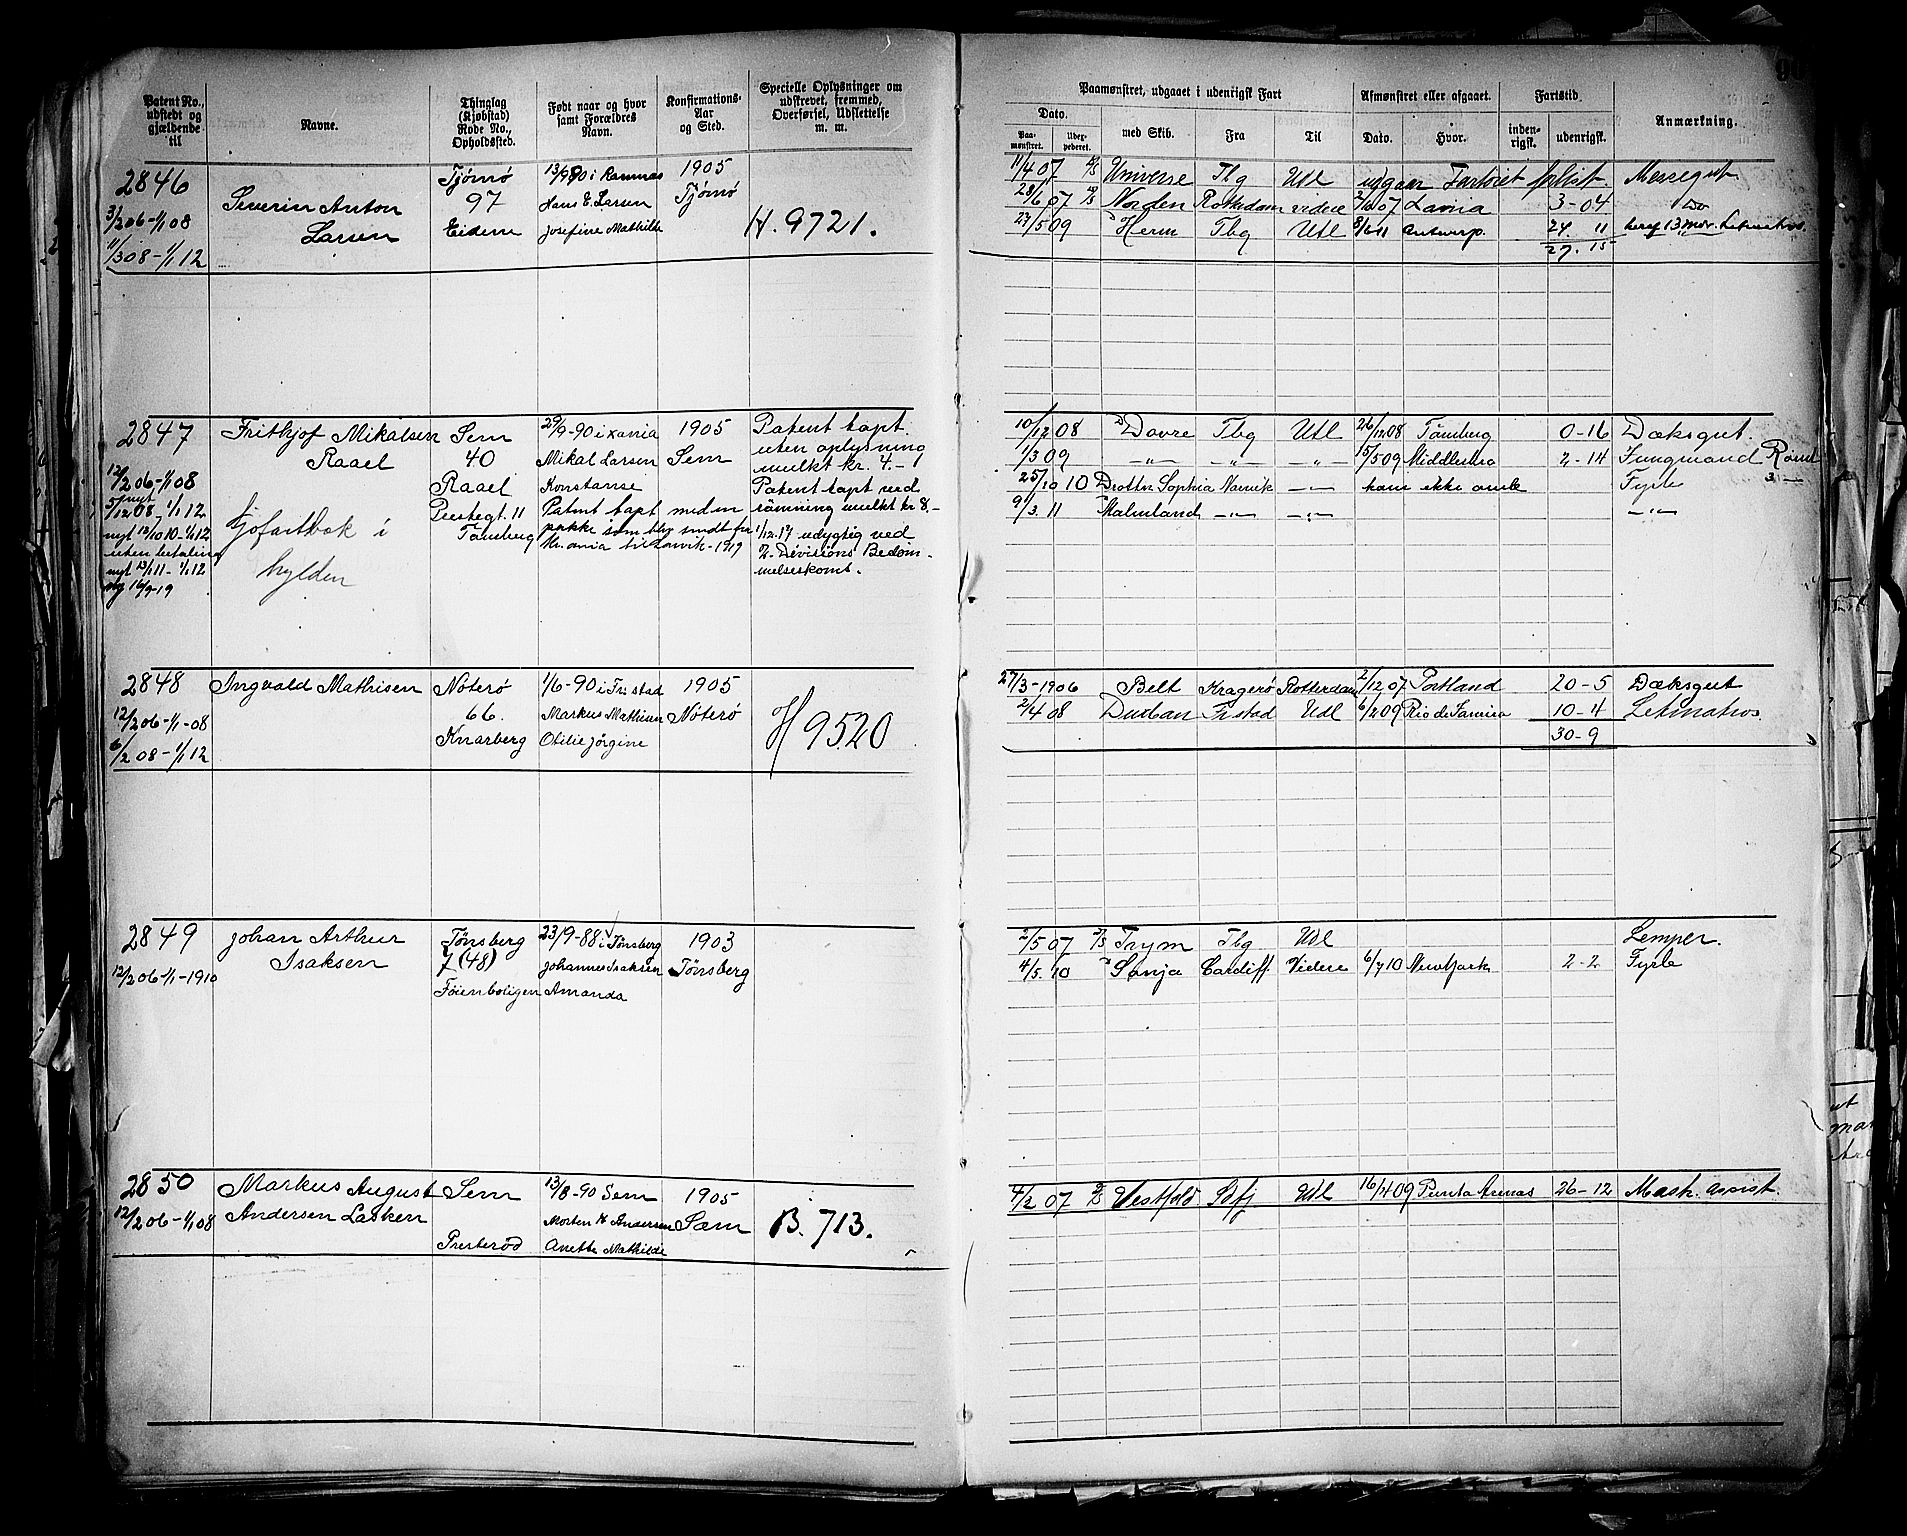 Patent No., udstedt og gjældende til
Navne.
Thinglag (Kjøbstad) Rode No., Opholdssted.
Født naar og hvor samt Forældres Navn.
Konfirmations-Aar og Sted.
Specielle Oplysninger om udskrevet, fremmed, Overførsel, Udslettelse m. m.
Paamønstret, udgaaet i udenrigsk Fart
Afmønstret eller afgaaet.
Fartstid.
Anmærkning.
Dato.
Paamønstret.
med Skib.
Fra
Til
Dato.
Hvor.
indenrigsk.
udenrigsk.
2846
3/2 06-1/1 08
11/3 08-1/1 12
Severin Anton
Larsen
Tjømø
97
Eidene
13/9 90 i Ramnæs
Hans E. Larsen
Josefine Mathilde
1905
Tjømø
H. 9721.
11/4 07 Universe Tbg Utl udgaar Fartøiet forlist. Messegut
28/6 07 Norden Rotterdam videre 2/10 07 Larvia 3-04 Do
27/5 09 Herm Tbg Utl 8/6 11 Antwerp. 24. 11
27. 15
2847
12/2 06-1/1 08
nyt
5/12 08-1/1 12
nyt 12/10 10-1/1 12
uten betaling
nyt 13/1 11-1/1 12
16/9-19
Frithjof Mikalsen
Raael
Sjøfartsbok i
hylden
Sem
40
Raael
Prestegt. 11
Tønsberg
29/9-90 i Xania
Mikal Larsen
Konstanse
1905
Sem
Patent tapt med en
pakke som blev sendt fra
Kr.ania til Larvik-1919
Patent tapt
uten oplysning
mulkt kr. 4.-
Patent tapt ved
rømning mulkt kr 8.-
1/12.17 udygtig ved
2. Divisions Bedøm-
melseskomt.
10/12 08 Dovre Tbg Utl 26/12 08 Tønsberg 0-16 Dæksgut.
1/3 09 -"- -"- -"- 15/5 09 Middlesbro 2-14 Jungmand Rømt
25/10 10 Drottn Sophia Narvik -"- kom ikke ombord Fyrb
9/3. 11 Malmland -"- -"- -"-
2848
12/2 06-1/1-08
6/2 08-1/1 12
Ingvald Mathisen
Nøterø
66.
Knarberg
1/6-90 i Fr.stad
Markus Mathisen
Otilie Jørgine
1905
Nøterø
H 9520
27/3-1906 Belt Kragerø Rotterdam 2/12 07 Portland 20-5 Dæksgut
2/4 08 Durban Fr.stad Udl 6/2 09 Rio de Janeiro 10-4 Letmatros.
30-9
2849
12/2 06-1/1-1910
Johan Arthur
Isaksen
Tønsberg
7 (48)
Føienboligen
23/9-88 i Tønsberg
Johannes Isaksen
Amanda
1903
Tønsberg
2/5 07 Trym Tbg Utl Lemper.
4/5. 10 Sonja Cardiff. Videre 6/7 10 Newyork 2-2 Fyrb
2850
12/2 06-1/1 08
Markus August
Andersen Lasken
Sem
Presterød
13/8-90 Sem
Morten H Andersen
Anette Mathilde
1905
Sæm
B. 713.
4/2 07 Vestfold. Sdfj Utl 16/4 09 Punta Arenas 26-12 Mask. Assist.